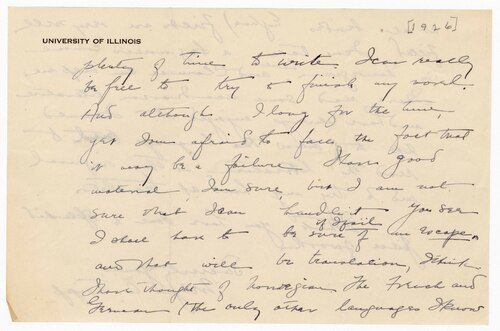 [1926]
UNIVERSITY OF ILLINOIS
plenty of time to write. I can really
be free to try to finish my novel.
And although I long for the time,
yet I am afraid to face the fact that
it may be a failure. I have good
material, I am sure, but I am not
sure that I can handle it. You see
if I fail
I shall have to be sure of an escape.
and that will be translation, I think.
I have thought of Norwegian. The French and
German (the only other languages I know